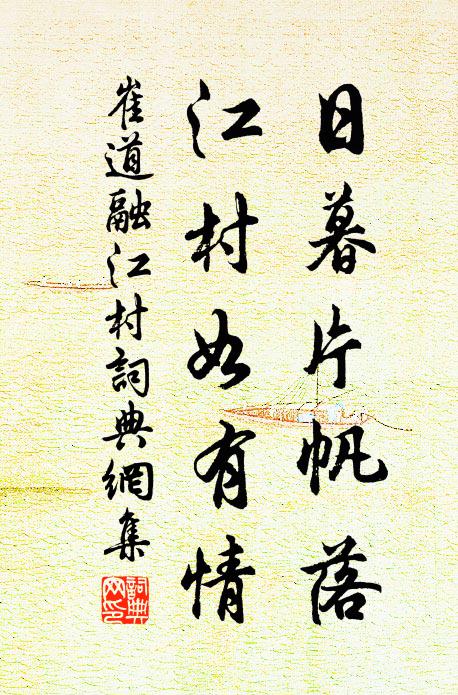 日暮片帆落
江村如有情
崔道融江村詞典網集
詞典网印